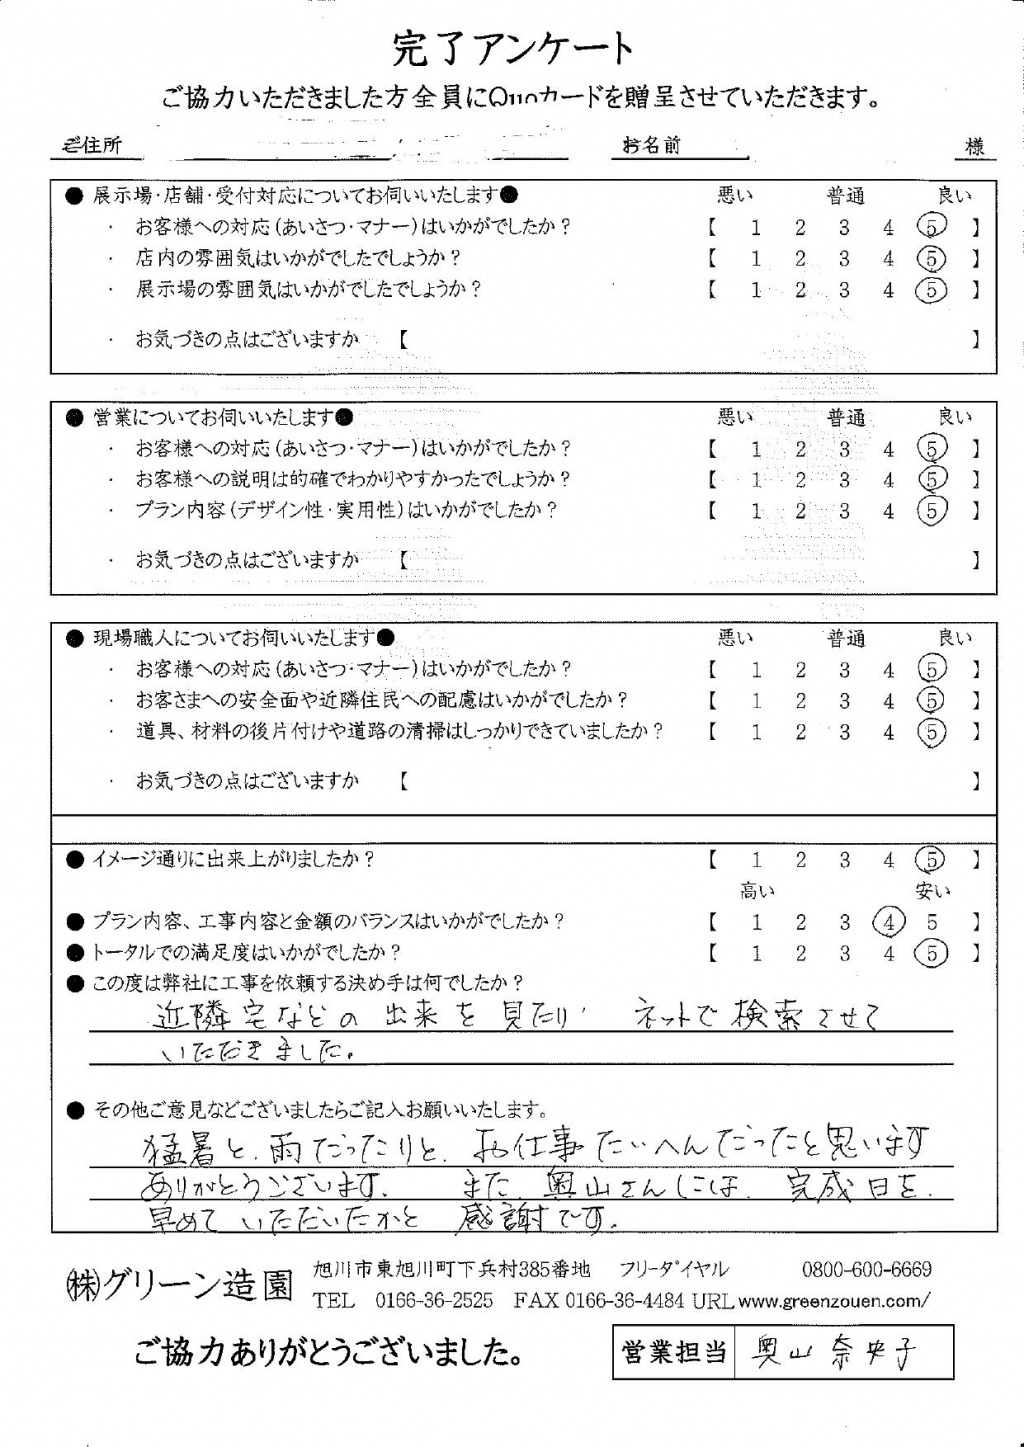 完了アンケート
ご協力いただきました方全員にQuoカードを贈呈させていただきます。
ご住所 お名前 様
● 展示場・店舗・受付対応についてお伺いいたします● 悪い 普通 良い
・ お客様への対応(あいさつ・マナー)はいかがでしたか? 【 1 2 3 4 5 】
・ 店内の雰囲気はいかがでしたでしょうか? 【 1 2 3 4 5 】
・ 展示場の雰囲気はいかがでしたでしょうか? 【 1 2 3 4 5 】
・ お気づきの点はございますか 【 】
● 営業についてお伺いいたします● 悪い 普通 良い
・ お客様への対応(あいさつ・マナー)はいかがでしたか? 【 1 2 3 4 5 】
・ お客様への説明は的確でわかりやすかったでしょうか? 【 1 2 3 4 5 】
・ プラン内容(デザイン性・実用性)はいかがでしたか? 【 1 2 3 4 5 】
・ お気づきの点はございますか 【 】
● 現場職人についてお伺いいたします● 悪い 普通 良い
・ お客様への対応(あいさつ・マナー)はいかがでしたか? 【 1 2 3 4 5 】
・ お客さまへの安全面や近隣住民への配慮はいかがでしたか? 【 1 2 3 4 5 】
・ 道具、材料の後片付けや道路の清掃はしっかりできていましたか? 【 1 2 3 4 5 】
・ お気づきの点はございますか 【 】
● イメージ通りに出来上がりましたか? 【 1 2 3 4 5 】
高い 安い
● プラン内容、工事内容と金額のバランスはいかがでしたか? 【 1 2 3 4 5 】
● トータルでの満足度はいかがでしたか? 【 1 2 3 4 5 】
● この度は弊社に工事を依頼する決め手は何でしたか?
近隣宅などの出来を見たり、ネットで検索させて
いただきました。
● その他ご意見などございましたらご記入お願いいたします。
猛暑と、雨だったりと、お仕事たいへんだったと思います
ありがとうございます。 また、奥山さんには、完成日を、
早めていただいたかと 感謝です。
㈱グリーン造園 旭川市東旭川町下兵村385番地 フリーダイヤル 0800-600-6669
TEL 0166-36-2525 FAX 0166-36-4484 URL www.greenzouen.com/
ご協力ありがとうございました。 営業担当 奥山奈央子